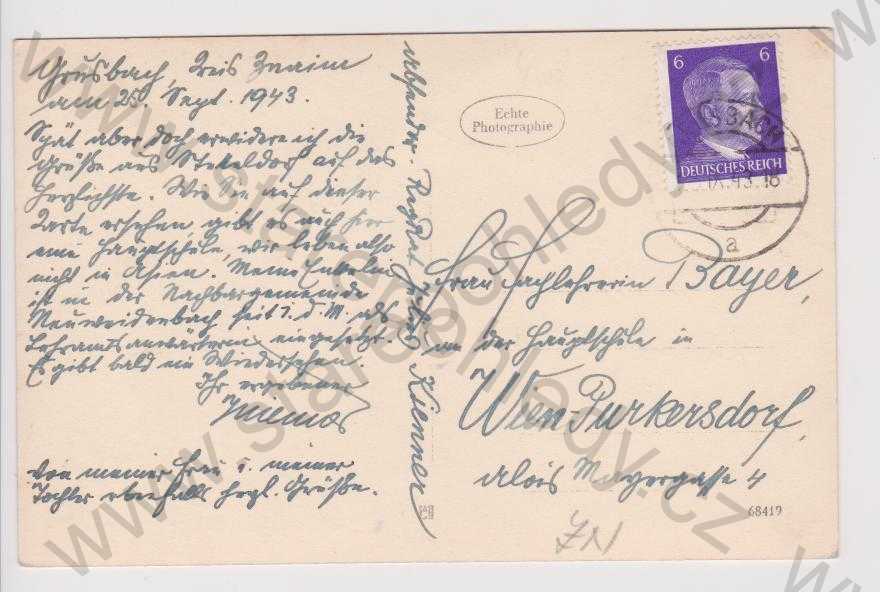 Grusbach, Kreis Znaim
am 25. Sept. 1943.
Spät aber doch erwidere ich die
Grüße aus Stekeldorf auf das
herzlichste. Wie Sie auf dieser
Karte ersehen, gibt es auch hier
eine Hauptschule, wir leben also
nicht in Asien. Meine Enkelin
ist in der Nachbargemeinde
Neuweidenbach seit 1. d. M. als
Lehramtsanwärterin eingesetzt.
Es gibt bald ein Wiedersehen
Ihr ergebener
Von meiner Frau u. meiner
Tochter ebenfalls herzl. Grüße.
Absender: Kienner
Echte
Photographie
6 6
DEUTSCHES REICH
BACH
43.18
a
Frau Fachlehrerin Bayer,
an der Hauptschule in
Wien-Purkersdorf,
Alois Mayergasse 4
68419
ZN
www.stare-pohledy.cz